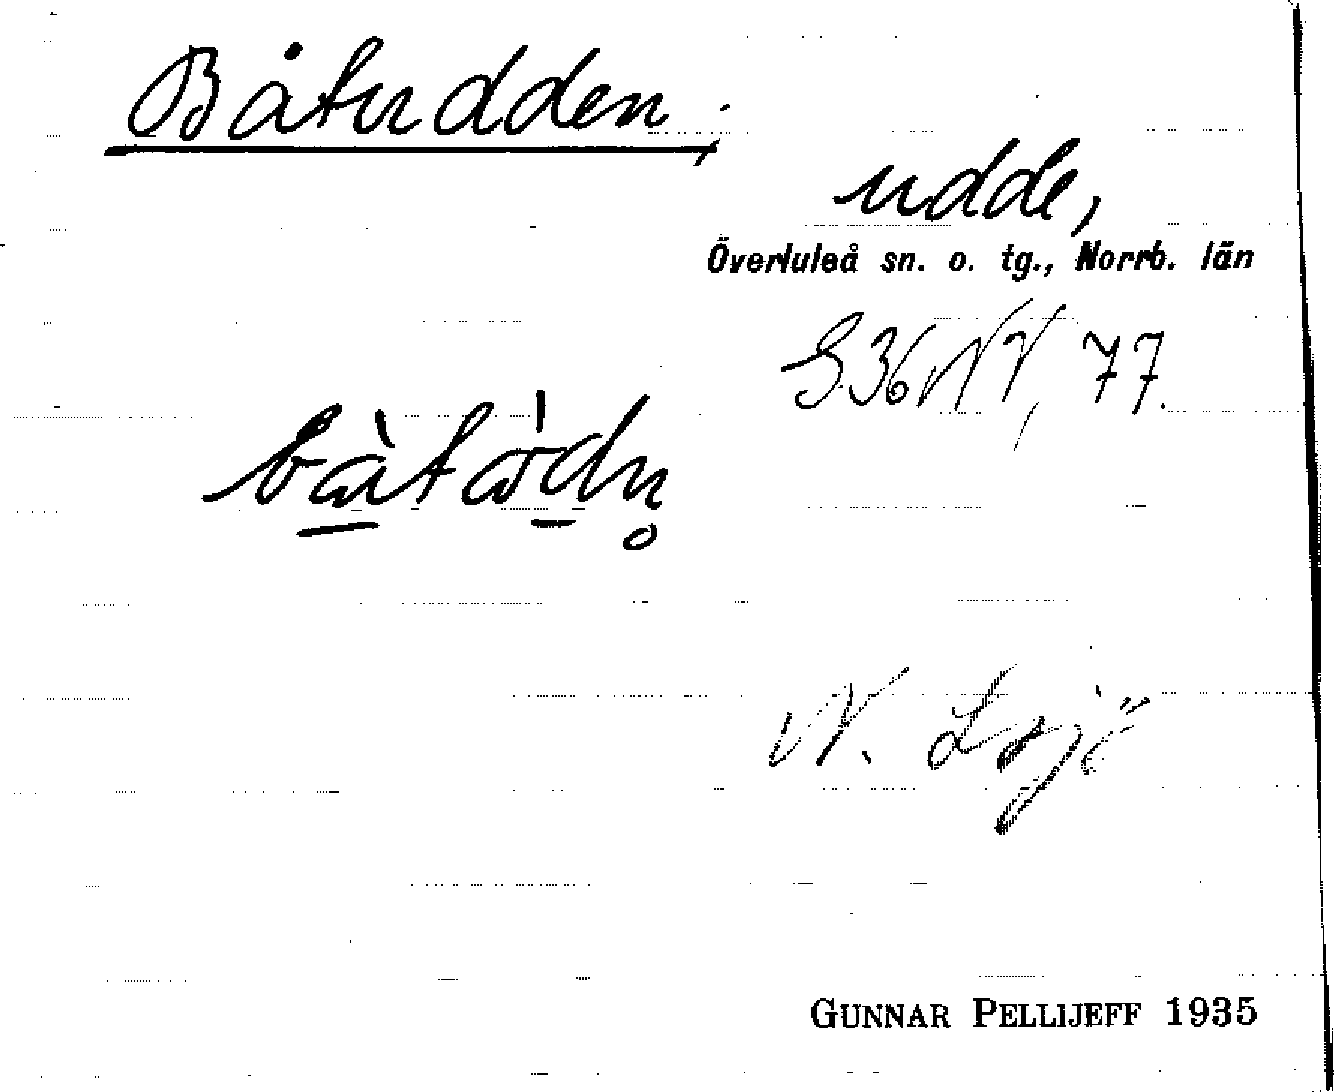 Båtudden,
udde,
Överluleå sn. o. tg., Norrb. län
S 36 NV, 77.
N.
GUNNAR PELLIJEFF 1935